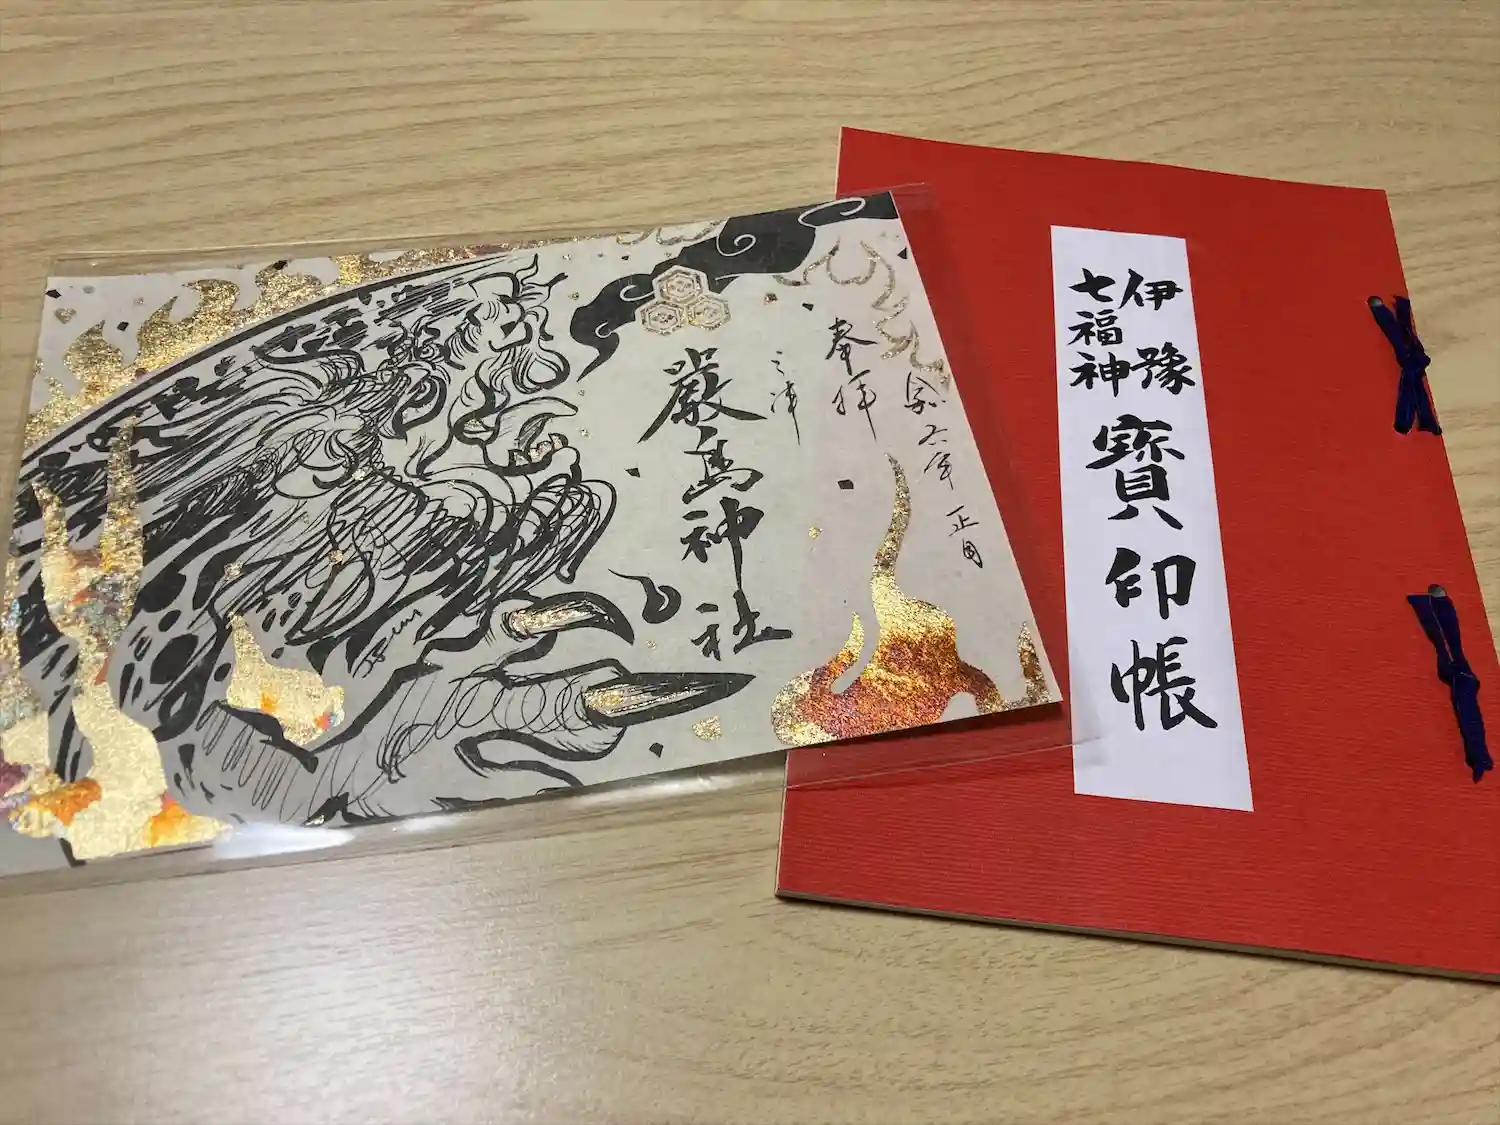 令和六年 正月
奉拝
三津
嚴島神社
伊豫
七福神
寶印帳